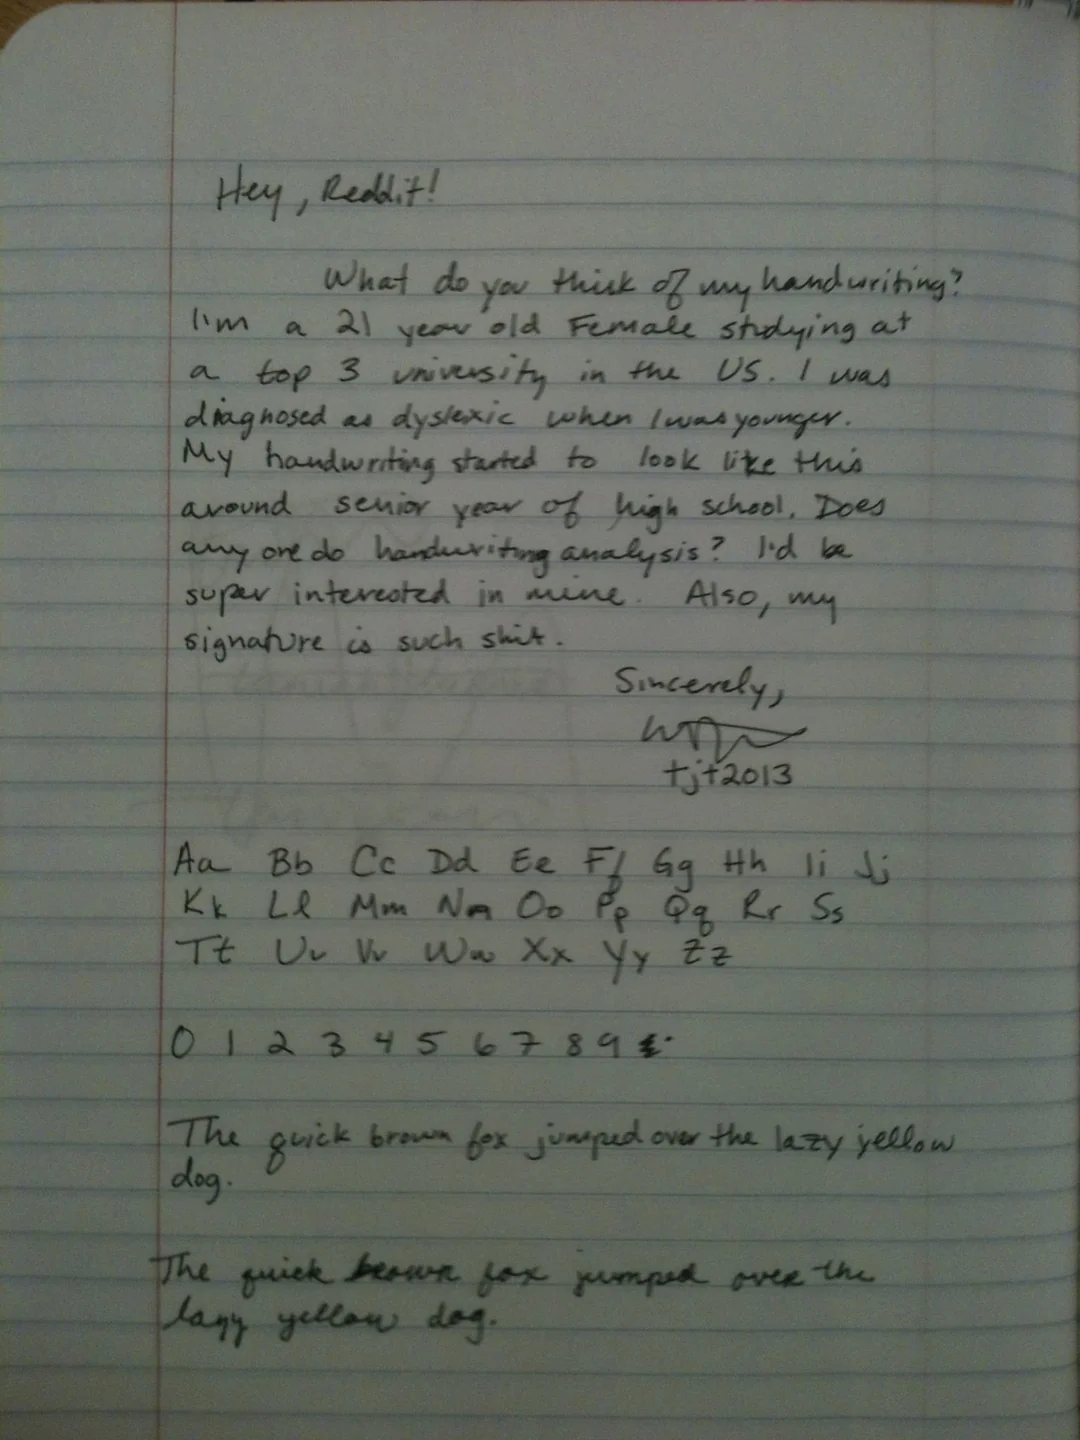 Hey, Reddit!
What do you think of my handwriting?
I'm a 21 year old Female studying at
a top 3 university in the US. I was
diagnosed as dyslexic when I was younger.
My handwriting started to look like this
around senior year of high school. Does
any one do handwriting analysis? I'd be
super interested in mine. Also, my
signature is such shit.
Sincerely,
tjt2013
Aa Bb Cc Dd Ee Ff Gg Hh Ii Jj
Kk Ll Mm Nn Oo Pp Qq Rr Ss
Tt Uu Vv Ww Xx Yy Zz
0 1 2 3 4 5 6 7 8 9
The quick brown fox jumped over the lazy yellow
dog.
The quick brown fox jumped over the
lazy yellow dog.